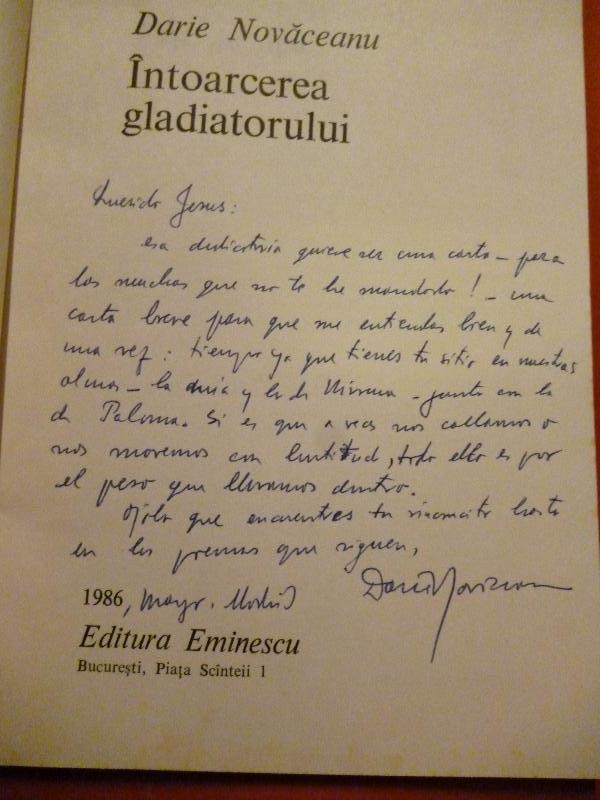 Darie Novăceanu
Întoarcerea
gladiatorului
Querido Jesus:
esa dedicatoria quiere ser una carta – para
las muchas que no te he mandado! – una
carta breve para que me entiendas bien y de
una vez: tiempo ya que tienes tu sitio en nuestras
almas – la mia y la de – junto con la
de Paloma. Si es que a veces nos callamos o
nos movemos con lentitud, todo ello es por
el peso que llevamos dentro.
Ojala que encuentres tu hasta
en los poemas que siguen,
1986, mayo. Madrid
Editura Eminescu
București, Piața Scînteii 1